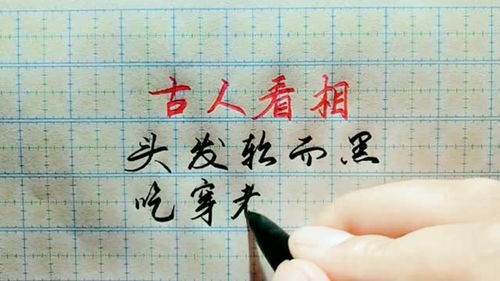 古人看相
头发软而黑
吃穿老